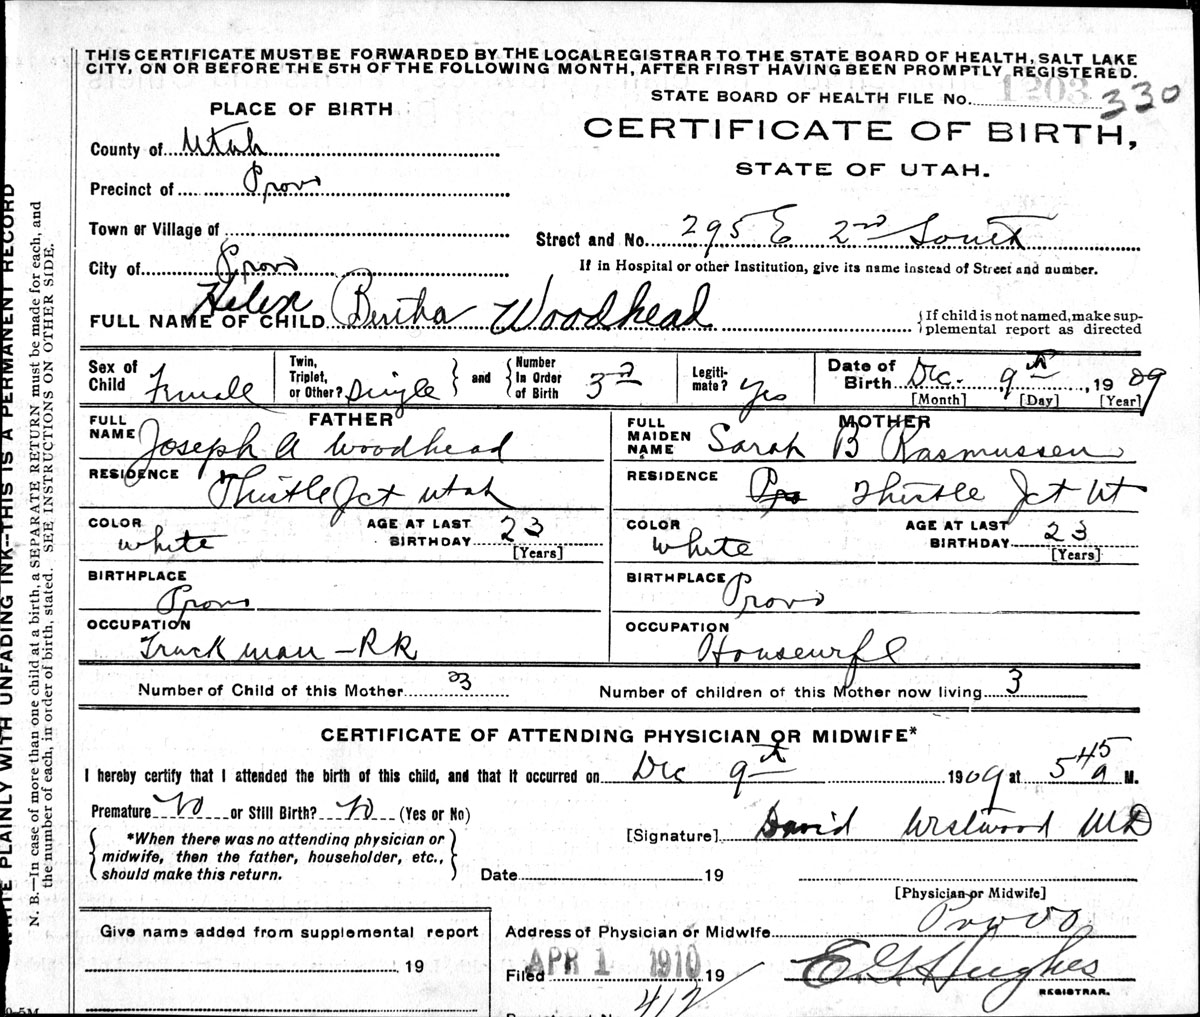 THIS CERTIFICATE MUST BE FORWARDED BY THE LOCAL REGISTRAR TO THE STATE BOARD OF HEALTH, SALT LAKE
CITY, ON OR BEFORE THE 5TH OF THE FOLLOWING MONTH, AFTER FIRST HAVING BEEN PROMPTLY REGISTERED.
STATE BOARD OF HEALTH FILE No. 1203 330
PLACE OF BIRTH
CERTIFICATE OF BIRTH,
STATE OF UTAH.
County of Utah
Precinct of Provo
Town or Village of
Street and No. 295 E 2nd South
City of Provo
If in Hospital or other Institution, give its name instead of Street and number.
FULL NAME OF CHILD Helen Bertha Woodhead
{If child is not named, make sup-
plemental report as directed
Sex of Child Female
Twin, Triplet, or Other? Single
and
Number In Order of Birth 3d
Legiti-mate? Yes
Date of Birth Dec. 9th, 1909
[Month] [Day] [Year]
FATHER
FULL NAME Joseph A Woodhead
RESIDENCE Thistle Jct Utah
COLOR white
AGE AT LAST BIRTHDAY 23
[Years]
BIRTHPLACE Provo
OCCUPATION Truckman - RR
MOTHER
FULL MAIDEN NAME Sarah B Rasmussen
RESIDENCE Pro Thistle Jct Ut
COLOR White
AGE AT LAST BIRTHDAY 23
[Years]
BIRTHPLACE Provo
OCCUPATION Housewife
Number of Child of this Mother 3
Number of children of this Mother now living 3
CERTIFICATE OF ATTENDING PHYSICIAN OR MIDWIFE*
I hereby certify that I attended the birth of this child, and that it occurred on Dec 9th 1909 at 5 45 a M.
Premature No or Still Birth? No (Yes or No)
*When there was no attending physician or
midwife, then the father, householder, etc.,
should make this return.
[Signature] David Westwood MD
Date 19
[Physician or Midwife]
Address of Physician or Midwife Provo
Give name added from supplemental report
19
Filed APR 1 1910 19
E G Hughes
REGISTRAR.
412
WRITE PLAINLY WITH UNFADING INK--THIS IS A PERMANENT RECORD
N. B.—In case of more than one child at a birth, a SEPARATE RETURN must be made for each, and
the number of each, in order of birth, stated. SEE INSTRUCTIONS ON OTHER SIDE.